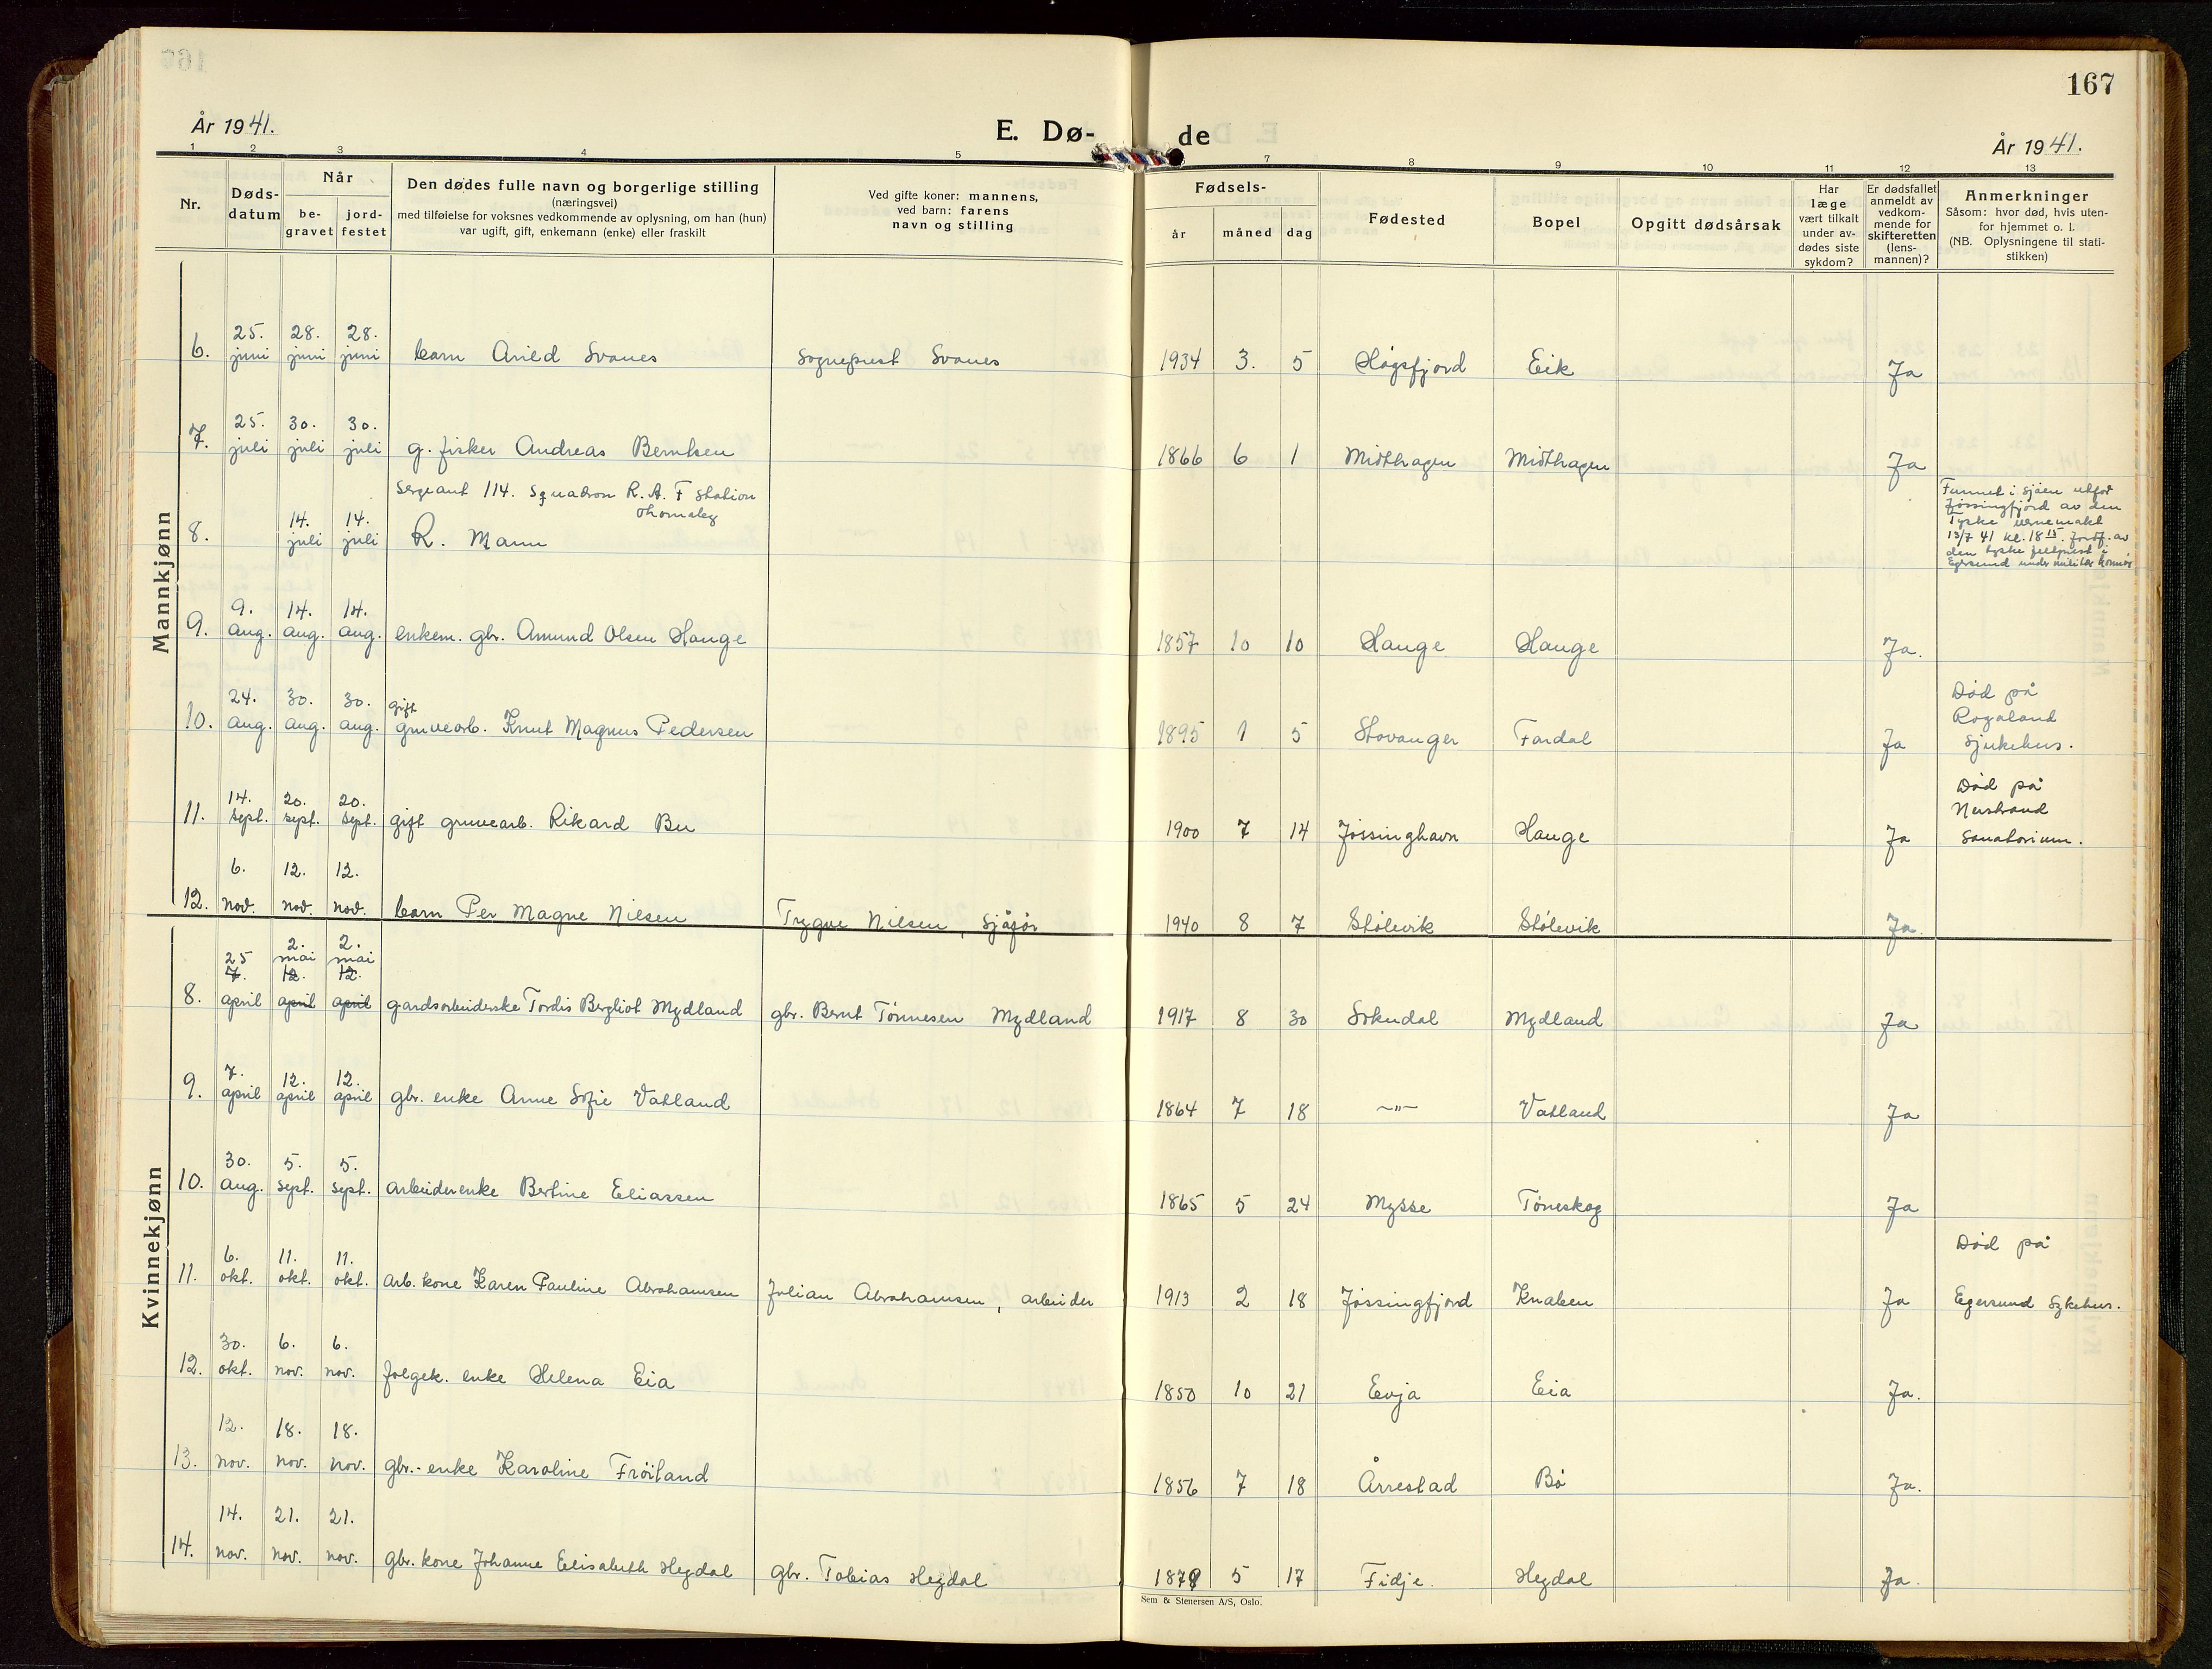 167
År 1941.
E. Dø-de
År 1941.
1 2 3 4 5 7 8 9 10 11 12 13
Nr.
Døds-datum
Når
be-gravet
jord-festet
Den dødes fulle navn og borgerlige stilling
(næringsvei)
med tilføielse for voksnes vedkommende av oplysning, om han (hun)
var ugift, gift, enkemann (enke) eller fraskilt
Ved gifte koner: mannens,
ved barn: farens
navn og stilling
Fødsels-
år måned dag
Fødested
Bopel
Opgitt dødsårsak
Har
læge
vært tilkalt
under av-
dødes siste
sykdom?
Er dødsfallet
anmeldt av
vedkom-
mende for
skifteretten
(lens-
mannen)?
Anmerkninger
Såsom: hvor død, hvis uten-
for hjemmet o. l.
(NB. Oplysningene til stati-
stikken)
Mannkjønn
6. 25. juni 28. juni 28. juni barn Arild Svanes Sogneprest Svanes 1934 3. 5 Høgsfjord Eik Ja
7. 25. juli 30. juli 30. juli g. fisker Andreas Berntsen 1866 6 1 Midthagen Midthagen Ja
Sergeant 114. Squadron R. A. F Station
8. 14. juli 14. juli R. Mann
Funnet i sjøen utfor
Jøssingfjord av den
Tyske vernemakt
13/7 41 kl. 18 15. Jordf. av
den tyske feltprest i
Egersund under militær honnør
9. 9. aug. 14. aug. 14. aug. enkem. gbr. Amund Olsen Hauge 1857 10 10 Hauge Hauge Ja.
10. 24. aug. 30. aug. 30. aug. gift gruvearb. Knut Magnus Pedersen 1895 1 5 Stavanger Fardal Ja
Død på
Rogaland
Sjukehus.
11. 14. sept. 20. sept. 20. sept. gift gruvearb. Rikard Bu 1900 7 14 Jøssinghavn Hauge Ja
Død på
Nerstrand
Sanatorium.
12. 6. nov. 12. nov. 12. nov. barn Per Magne Nilsen Trygve Nilsen, sjåfør 1940 8 7 Stølevik Stølevik Ja.
Kvinnekjønn
8. 25 7. april 2. mai 12. april 2. mai 12. april gardsarbeiderske Tordis Bergliot Mydland gbr. Bernt Tønnesen Mydland 1917 8 30 Sokndal Mydland Ja
9. 7. april 12. april 12. april gbr. enke Anne Sofie Vatland 1864 7 18 —"— Vatland Ja
10. 30. aug. 5. sept. 5. sept. arbeiderenke Bertine Eliassen 1865 5 24 Mysse Tøneskog Ja
11. 6. okt. 11. okt. 11. okt. arb. kone Karen Pauline Abrahamsen Julian Abrahamsen, arbeider 1913 2 18 Jøssingfjord Knaben Ja
Død på
Egersund Sykehus.
12. 30. okt. 6. nov. 6. nov. folgek. enke Helena Eia 1850 10 21 Evja Eia Ja.
13. 12. nov. 18. nov. 18. nov. gbr.-enke Karoline Frøitland 1856 7 18 Årrestad Bø Ja.
14. 14. nov. 21. nov. 21. nov. gbr. kone Johanne Elisabeth Hegdal gbr. Tobias Hegdal 5 17 Fidje. Hegdal Ja.
Sem & Stenersen A/S, Oslo.